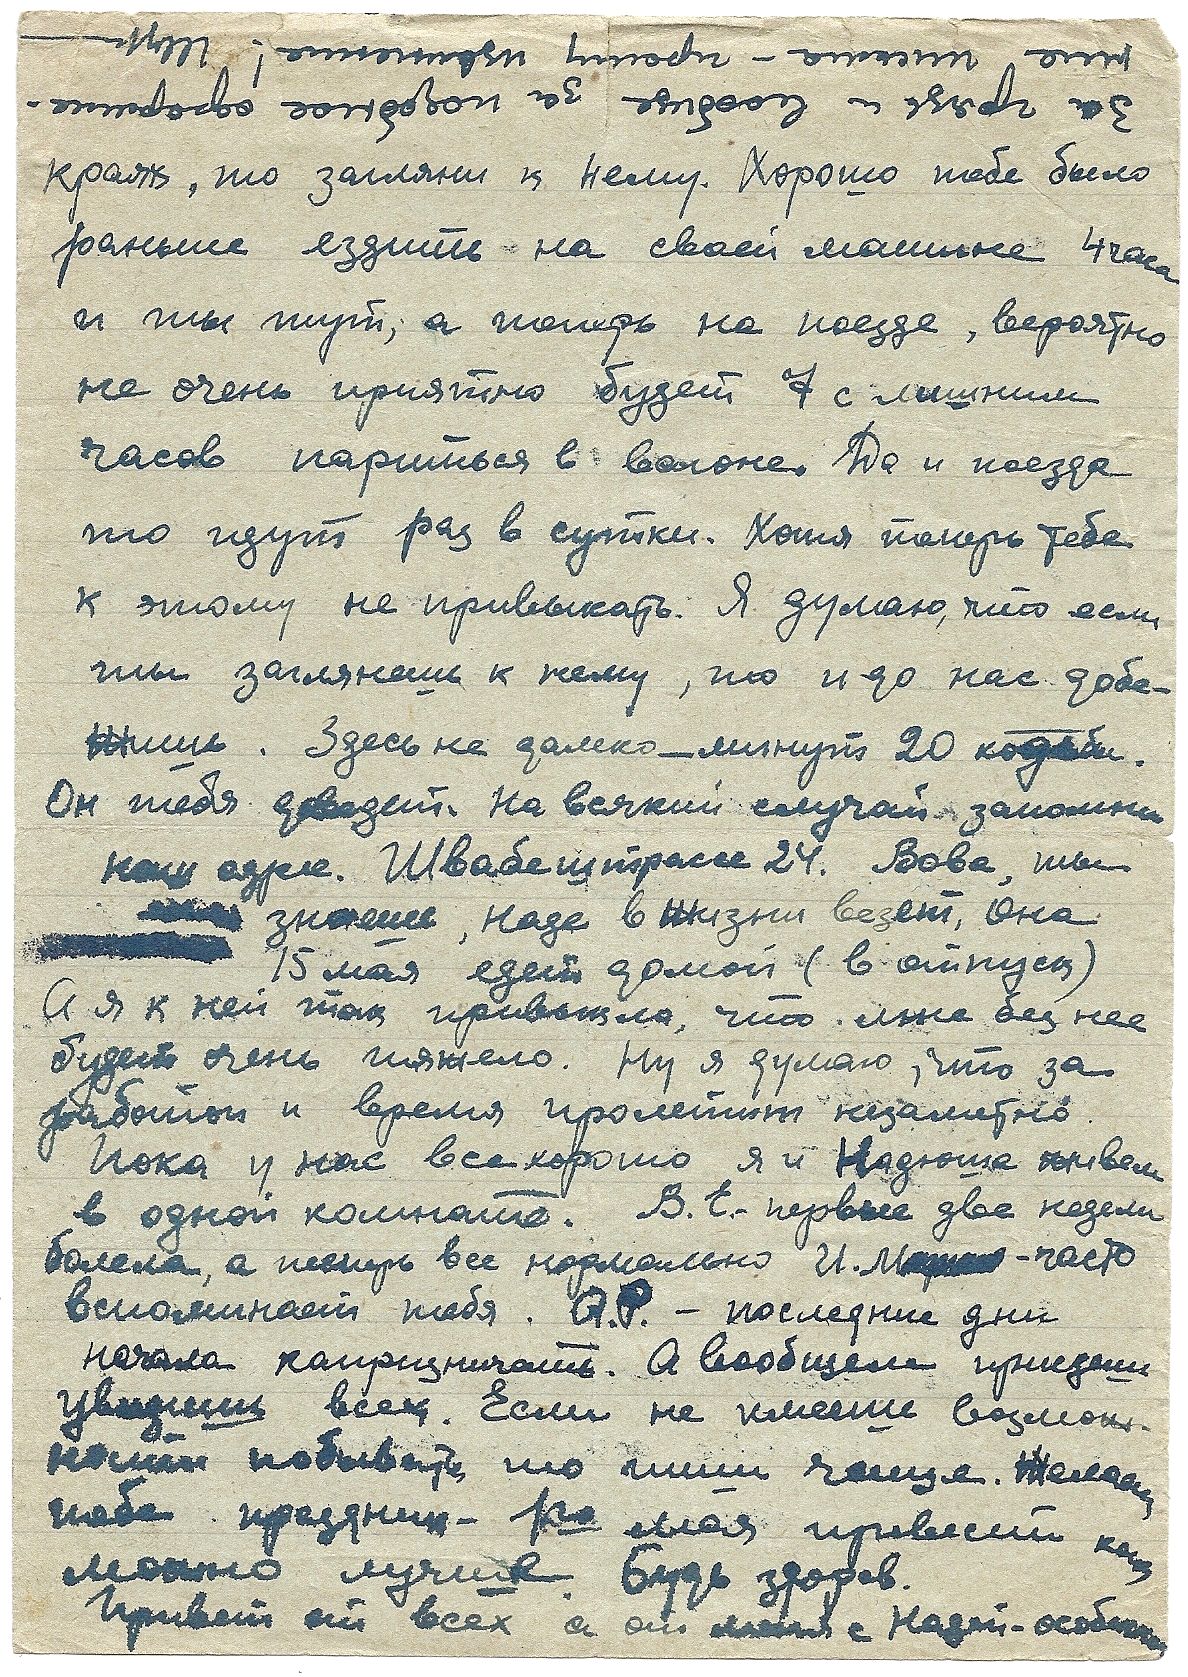 краях, то загляни к нему. Хорошо тебе было
раньше ездить на своей машине 4 часа
и ты тут, а теперь на поезде, вероятно
не очень приятно будет 7 с лишним
часов париться в вагоне. Да и поезда
то идут раз в сутки. Хотя теперь тебе
к этому не привыкать. Я думаю, что если
ты заглянешь к нему, то и до нас добе-
жишь. Здесь не далеко – минут 20 ходьбы.
Он тебя доведет. На всякий случай запомни
наш адрес. Швабештрассе 24. Вова, ты
знаешь, Наде в жизни везет, Она
15 мая едет домой (в отпуск)
А я к ней так привыкла, что мне без нее
будет очень тяжело. Ну я думаю, что за
работой и время пролетит незаметно.
Пока у нас все хорошо я и Надюша живем
в одной комнате. В. Е. – первые две недели
болела, а теперь все нормально И. М – часто
вспоминает тебя. А.Р. – последние дни
начала капризничать. А вообщем приедешь
увидишь всех. Если не имееш возмож-
ности побывать, то пиши чаще. Желаю
тебе праздник – 1го мая провести как
можно лучше. Будь здоров.
Привет от всех а от меня с Надей – особенно
За грязь и вообще за подобное оформле-
ние письма – прошу извинение!